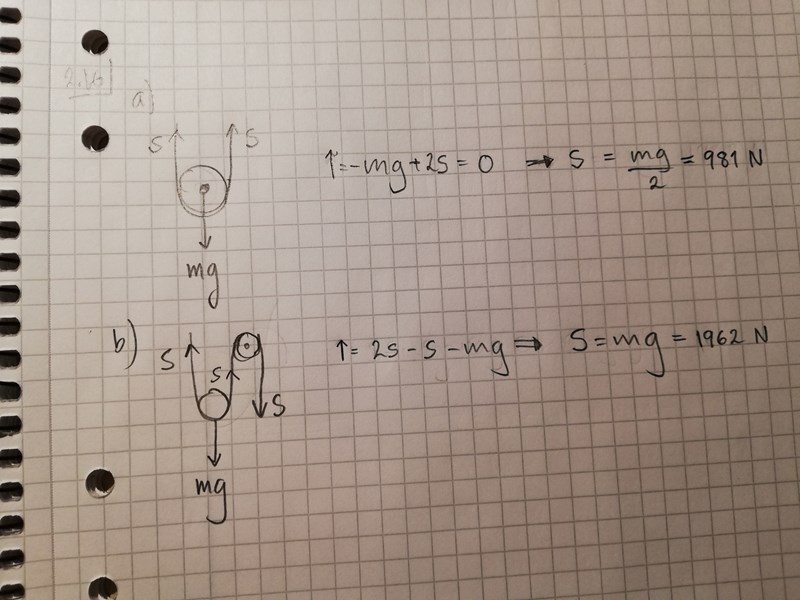 2.16)
a)
S S
↑=-mg+2S = 0 → S = mg/2 = 981 N
mg
b)
S S S
↑= 2S - S - mg → S = mg = 1962 N
mg